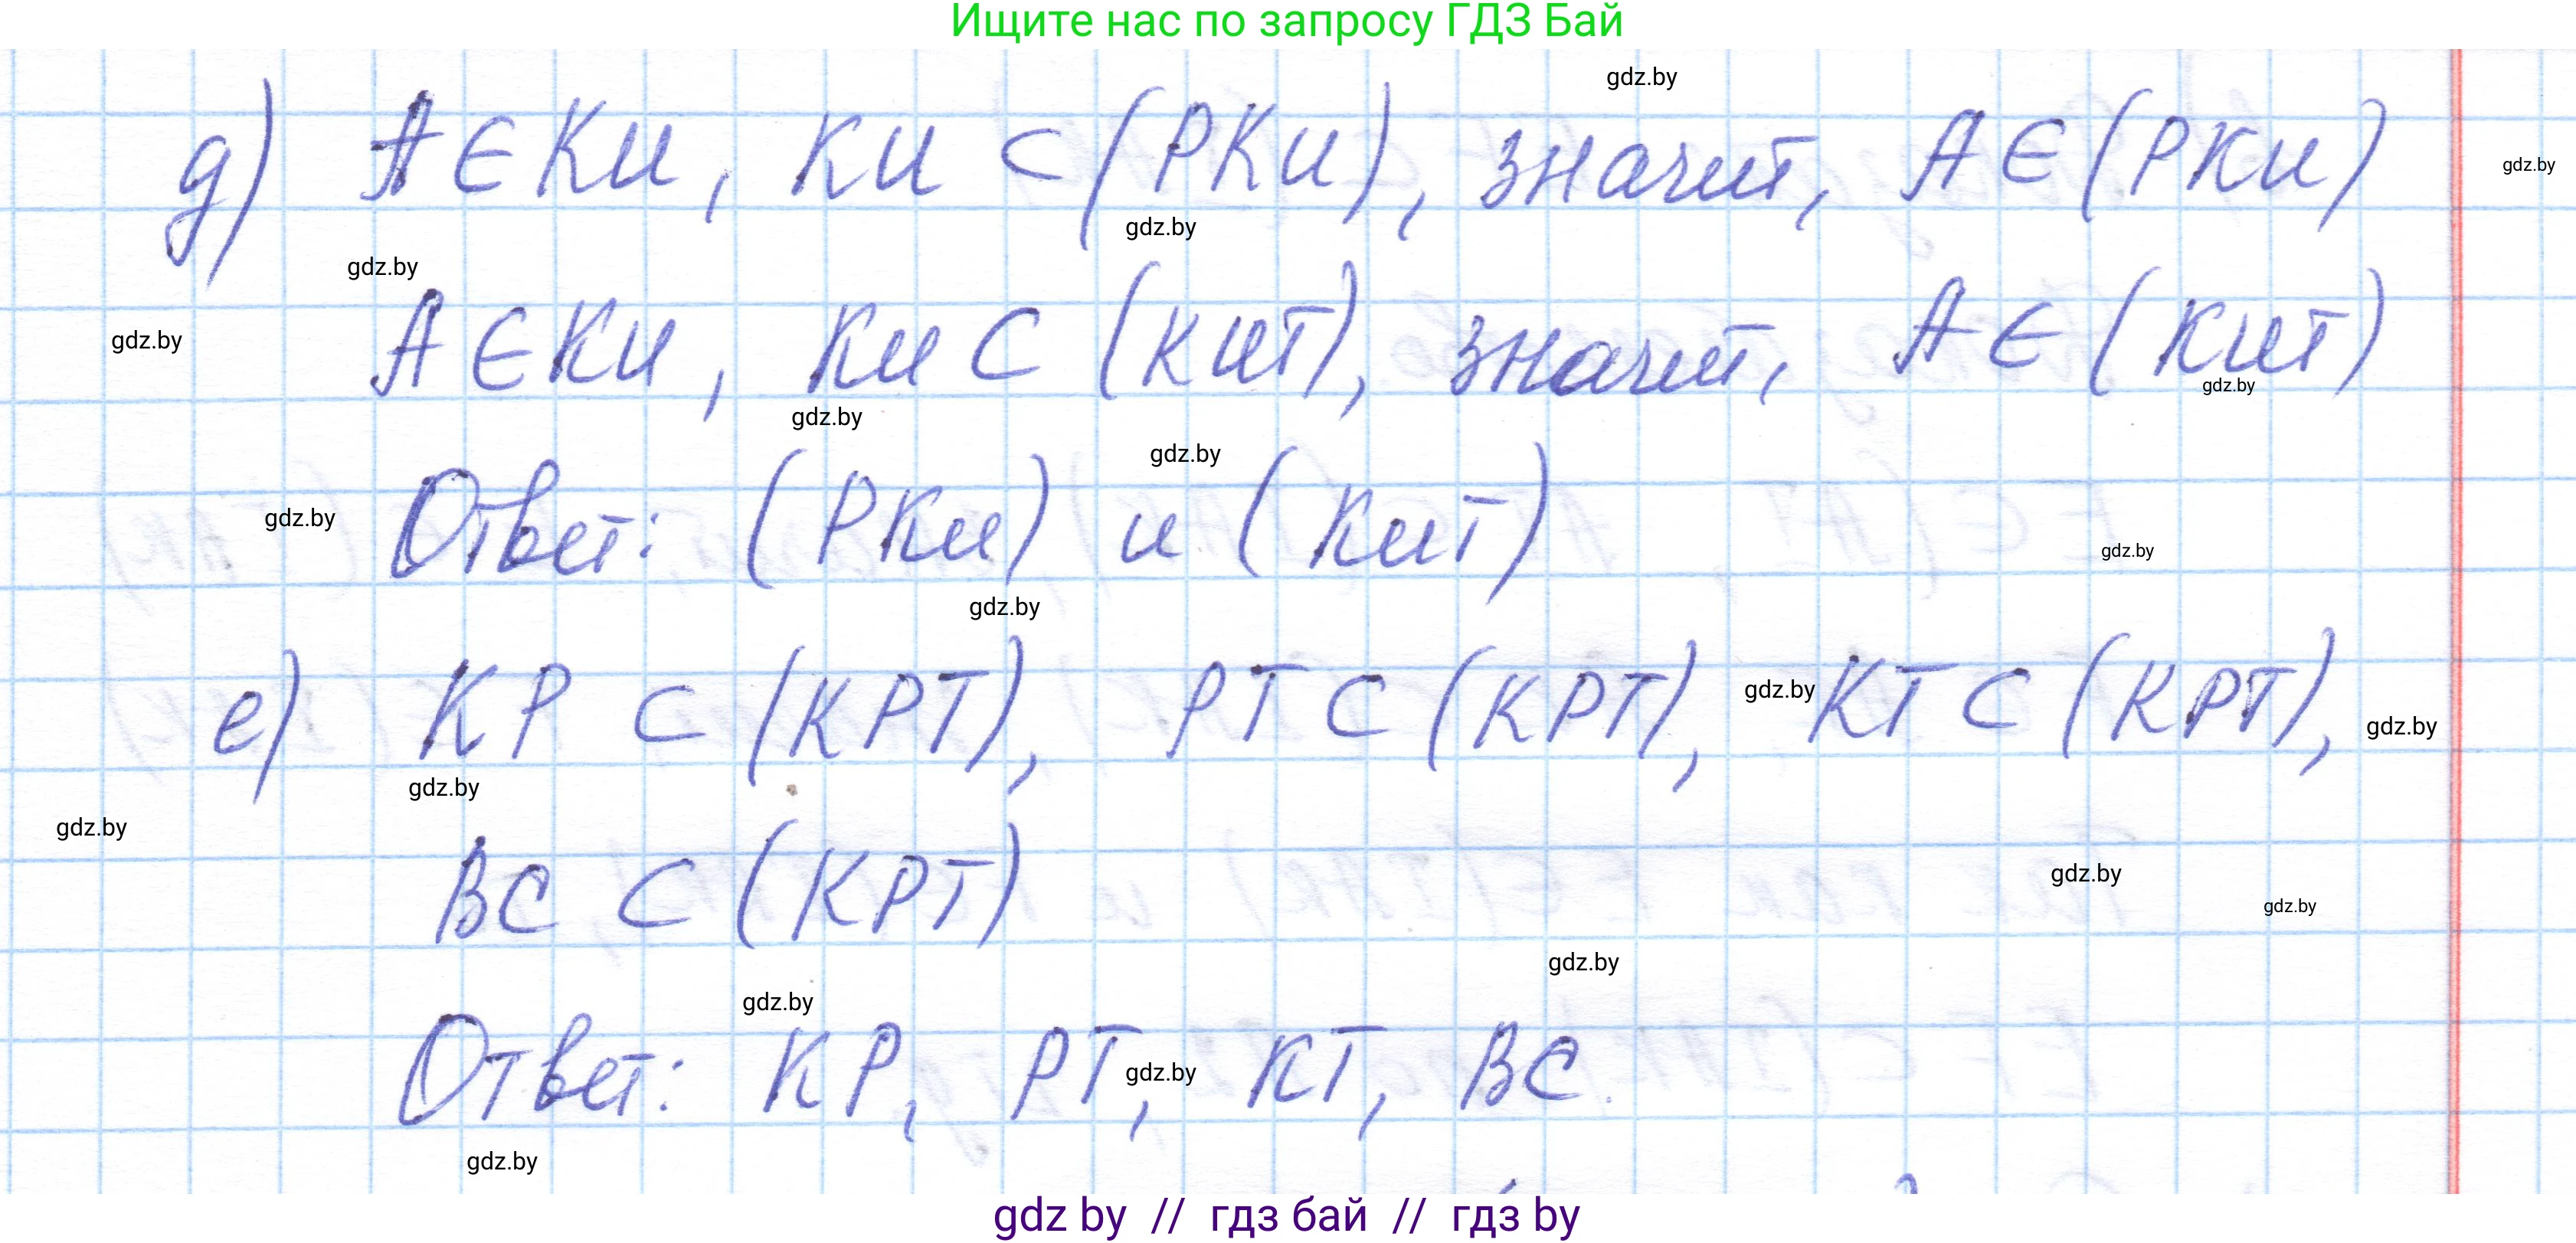 Ищите нас по запросу ГДЗ Бай
gdz.by
д) A ∈ KИ, KИ ⊂ (PKИ), значит, A ∈ (PKИ)
gdz.by
gdz.by
gdz.by
gdz.by
A ∈ KИ, KИ ⊂ (KИT), значит, A ∈ (KИT)
gdz.by
gdz.by
gdz.by
Ответ: (PKИ) и (KИT)
gdz.by
gdz.by
gdz.by
е) KP ⊂ (KPT), PT ⊂ (KPT), KT ⊂ (KPT),
gdz.by
gdz.by
gdz.by
gdz.by
BC ⊂ (KPT)
gdz.by
gdz.by
gdz.by
gdz.by
Ответ: KP, PT, KT, BC.
gdz.by
gdz.by
gdz by // гдз бай // гдз by